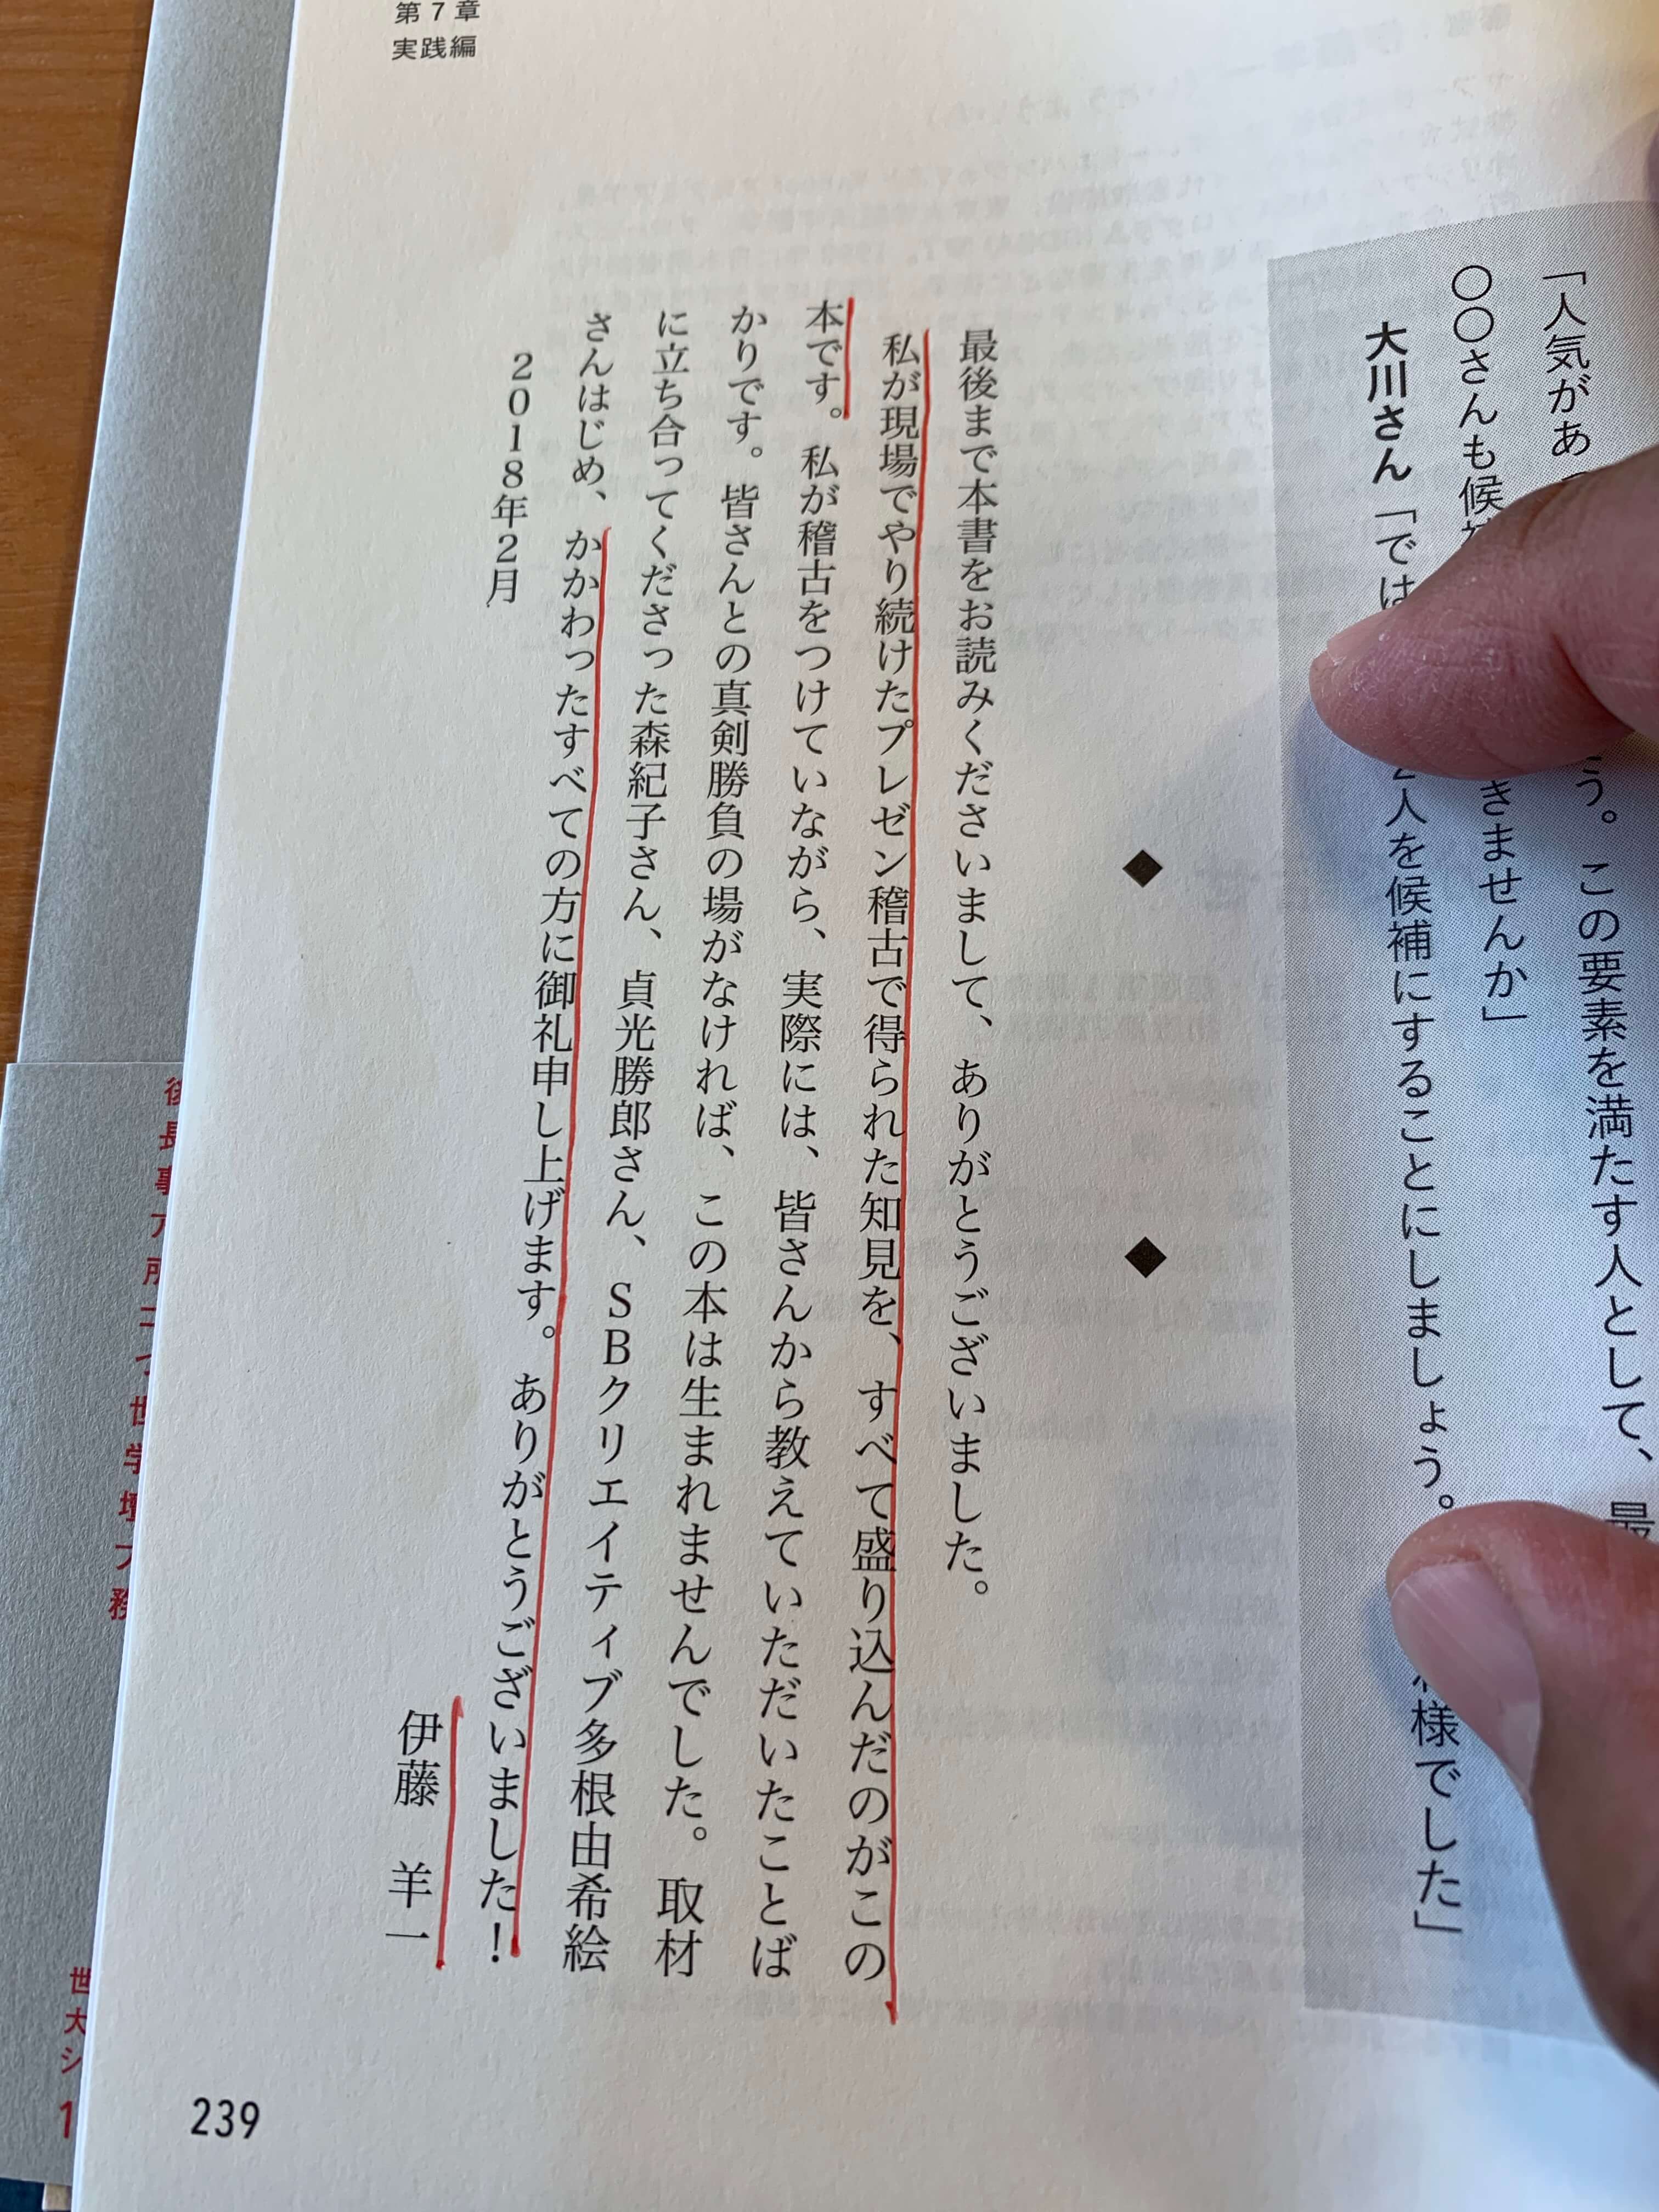 第7章
実践編
「人気があ
う。この要素を満たす人として、最
〇〇さんも候補
きませんか」
大川さん「では
2人を候補にすることにしましょう。
様でした」
◆ ◆
最後まで本書をお読みくださいまして、ありがとうございました。
私が現場でやり続けたプレゼン稽古で得られた知見を、すべて盛り込んだのがこの
本です。私が稽古をつけていながら、実際には、皆さんから教えていただいたことば
かりです。皆さんとの真剣勝負の場がなければ、この本は生まれませんでした。取材
に立ち合ってくださった森紀子さん、貞光勝郎さん、SBクリエイティブ多根由希絵
さんはじめ、かかわったすべての方に御礼申し上げます。ありがとうございました!
2018年2月
伊藤 羊一
239